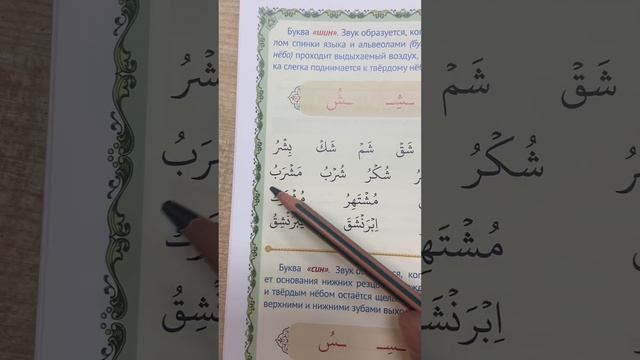 Буква «шин». Звук образуется, ког
лом спинки языка и альвеолами (бу
нёба) проходит выдыхаемый воздух,
ка слегка поднимается к твёрдому нёб
ـشِـ ـشُ
شَقْ شَمْ شَكْ بِشْرُ
شُكْرُ شُرْبُ مَشْرَبُ
مُشْتَهِرُ
اِبْرَنْشَقَ يَبْرَنْشِقُ
Буква «син». Звук
ет основания нижних
и твёрдым нёбом остаётся
верхними и нижними зубами
ـسِـ ـسُ